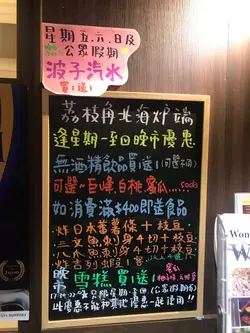 星期五.六.日及
公眾假期
波子汽水
買1送1
荔枝角北海炉端
逢星期一至日晚市優惠
無酒精飲品買1送1(可選不同)
可選~巨峰,白桃,蜜瓜...soda
如消費滿$400即送食品
炸日本蕃薯條+枝豆
三文魚刺身4切+枝豆
八爪魚刺身4切+枝豆
晚市 雪糕買1送1
此優惠不能和其他優惠一起使用!!